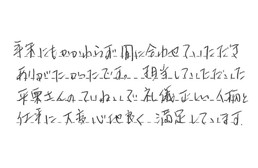 年末にもかかわらず間に合わせていただき
ありがたかったです。担当していただいた
平栗さんのていねいで礼儀正しい人柄と
仕事に大変心地良く満足しています。